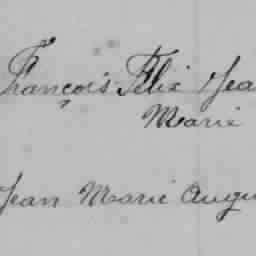 François Félix Jea
Marie
Jean Marie Augu